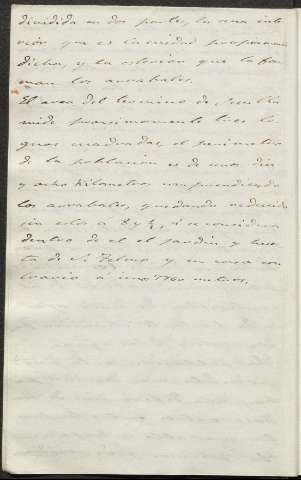 dividida en dos partes, la una inte
rior que es la ciudad propiamente
dicha, y la esterior que la for
man los arrabales.
El area del termino de Sevilla
mide proximamente tres le
guas cuadradas, el perimetro
de la poblacion es de unos diez
y ocho Kilometros comprendiendo
los arrabales, quedando reducido
sin estos á 8 y ½, si se considera
dentro de él el jardin y huer
ta de Sn Telmo y en caso con
trario á unos 7760 metros.